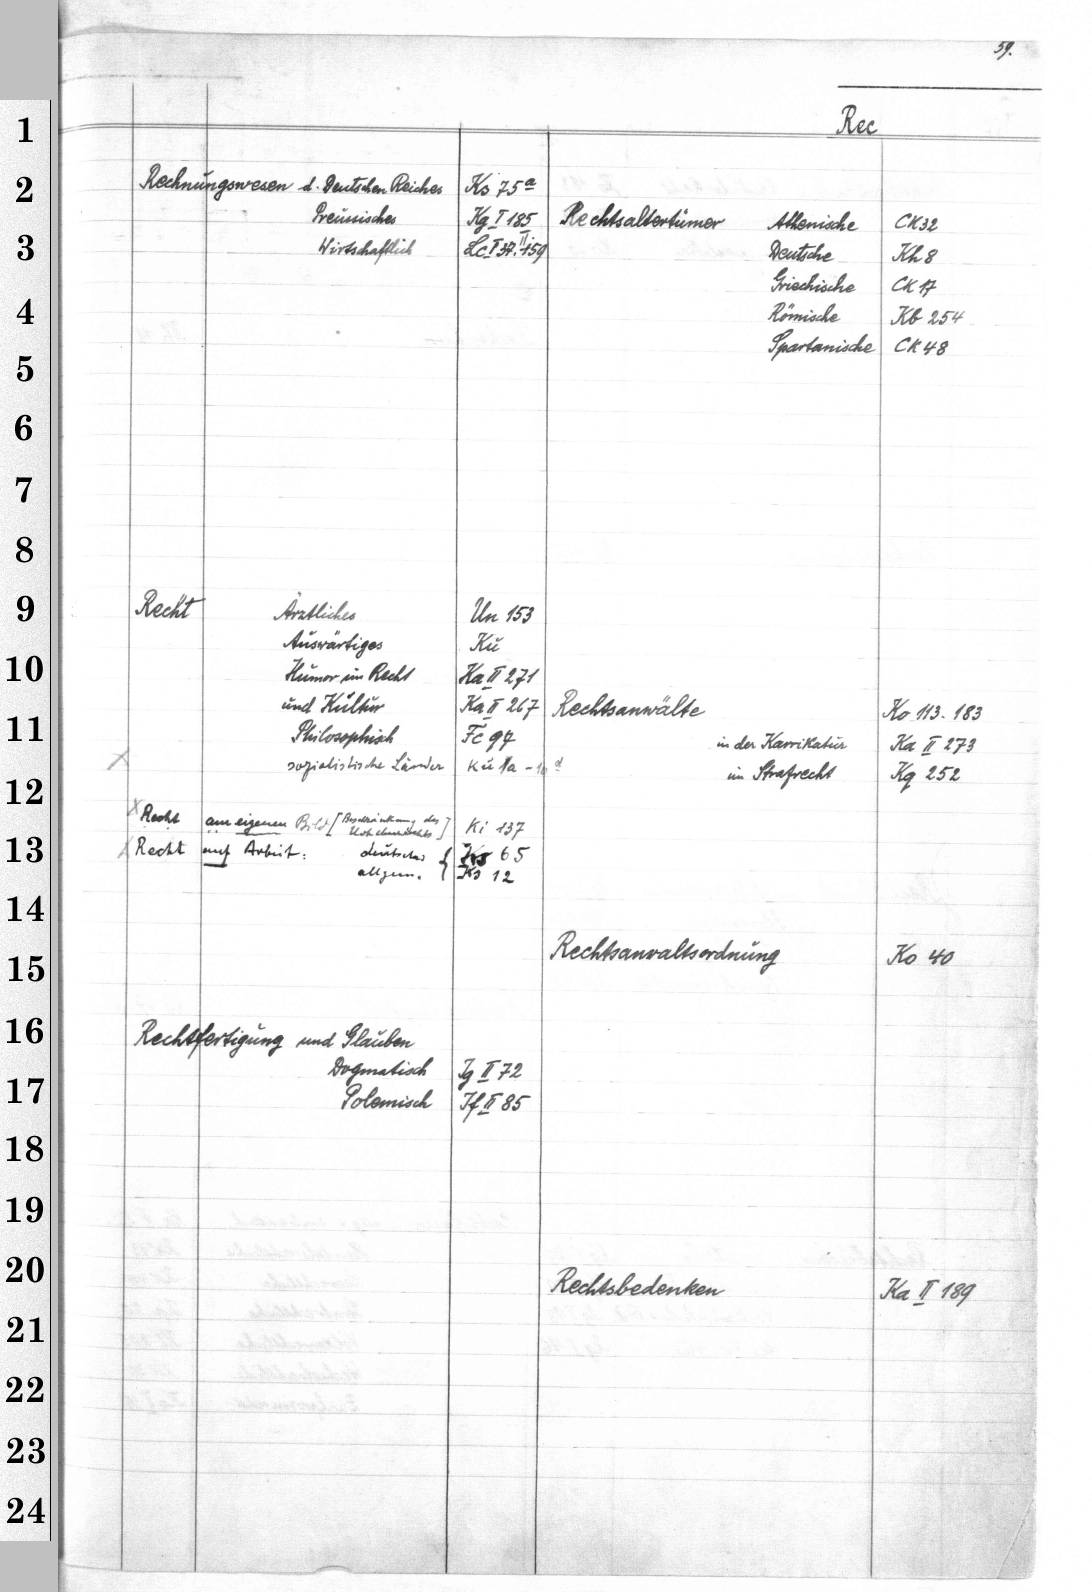 59.
Rec
1
2
3
4
5
6
7
8
9
10
11
12
13
14
15
16
17
18
19
20
21
22
23
24
Rechnungswesen d. Deutschen Reiches Ks 75a
Preußisches Kg I 185
Wirtschaftlich Lc I 37. II 159
Recht Ärztliches Un 153
Auswärtiges Kü
Humor im Recht Ka II 271
und Kultur Ka II 267
Philosophisch Fc 97
x sozialistische Länder Kü 1a -
x Recht am eigenen Bild [Beschränkung des
Urheberrechts] Ki 137
x Recht auf Arbeit: deutsches { Ks 65
allgem. Ks 12
Rechtfertigung und Glauben
Dogmatisch Jg II 72
Polemisch Jf II 85
Rechtsaltertümer Athenische CK 32
Deutsche Kh 8
Griechische CK 17
Römische Kb 254
Spartanische CK 48
Rechtsanwälte Ko 113. 183
in der Karrikatur Ka II 273
im Strafrecht Kq 252
Rechtsanwaltsordnung Ko 40
Rechtsbedenken Ka II 189